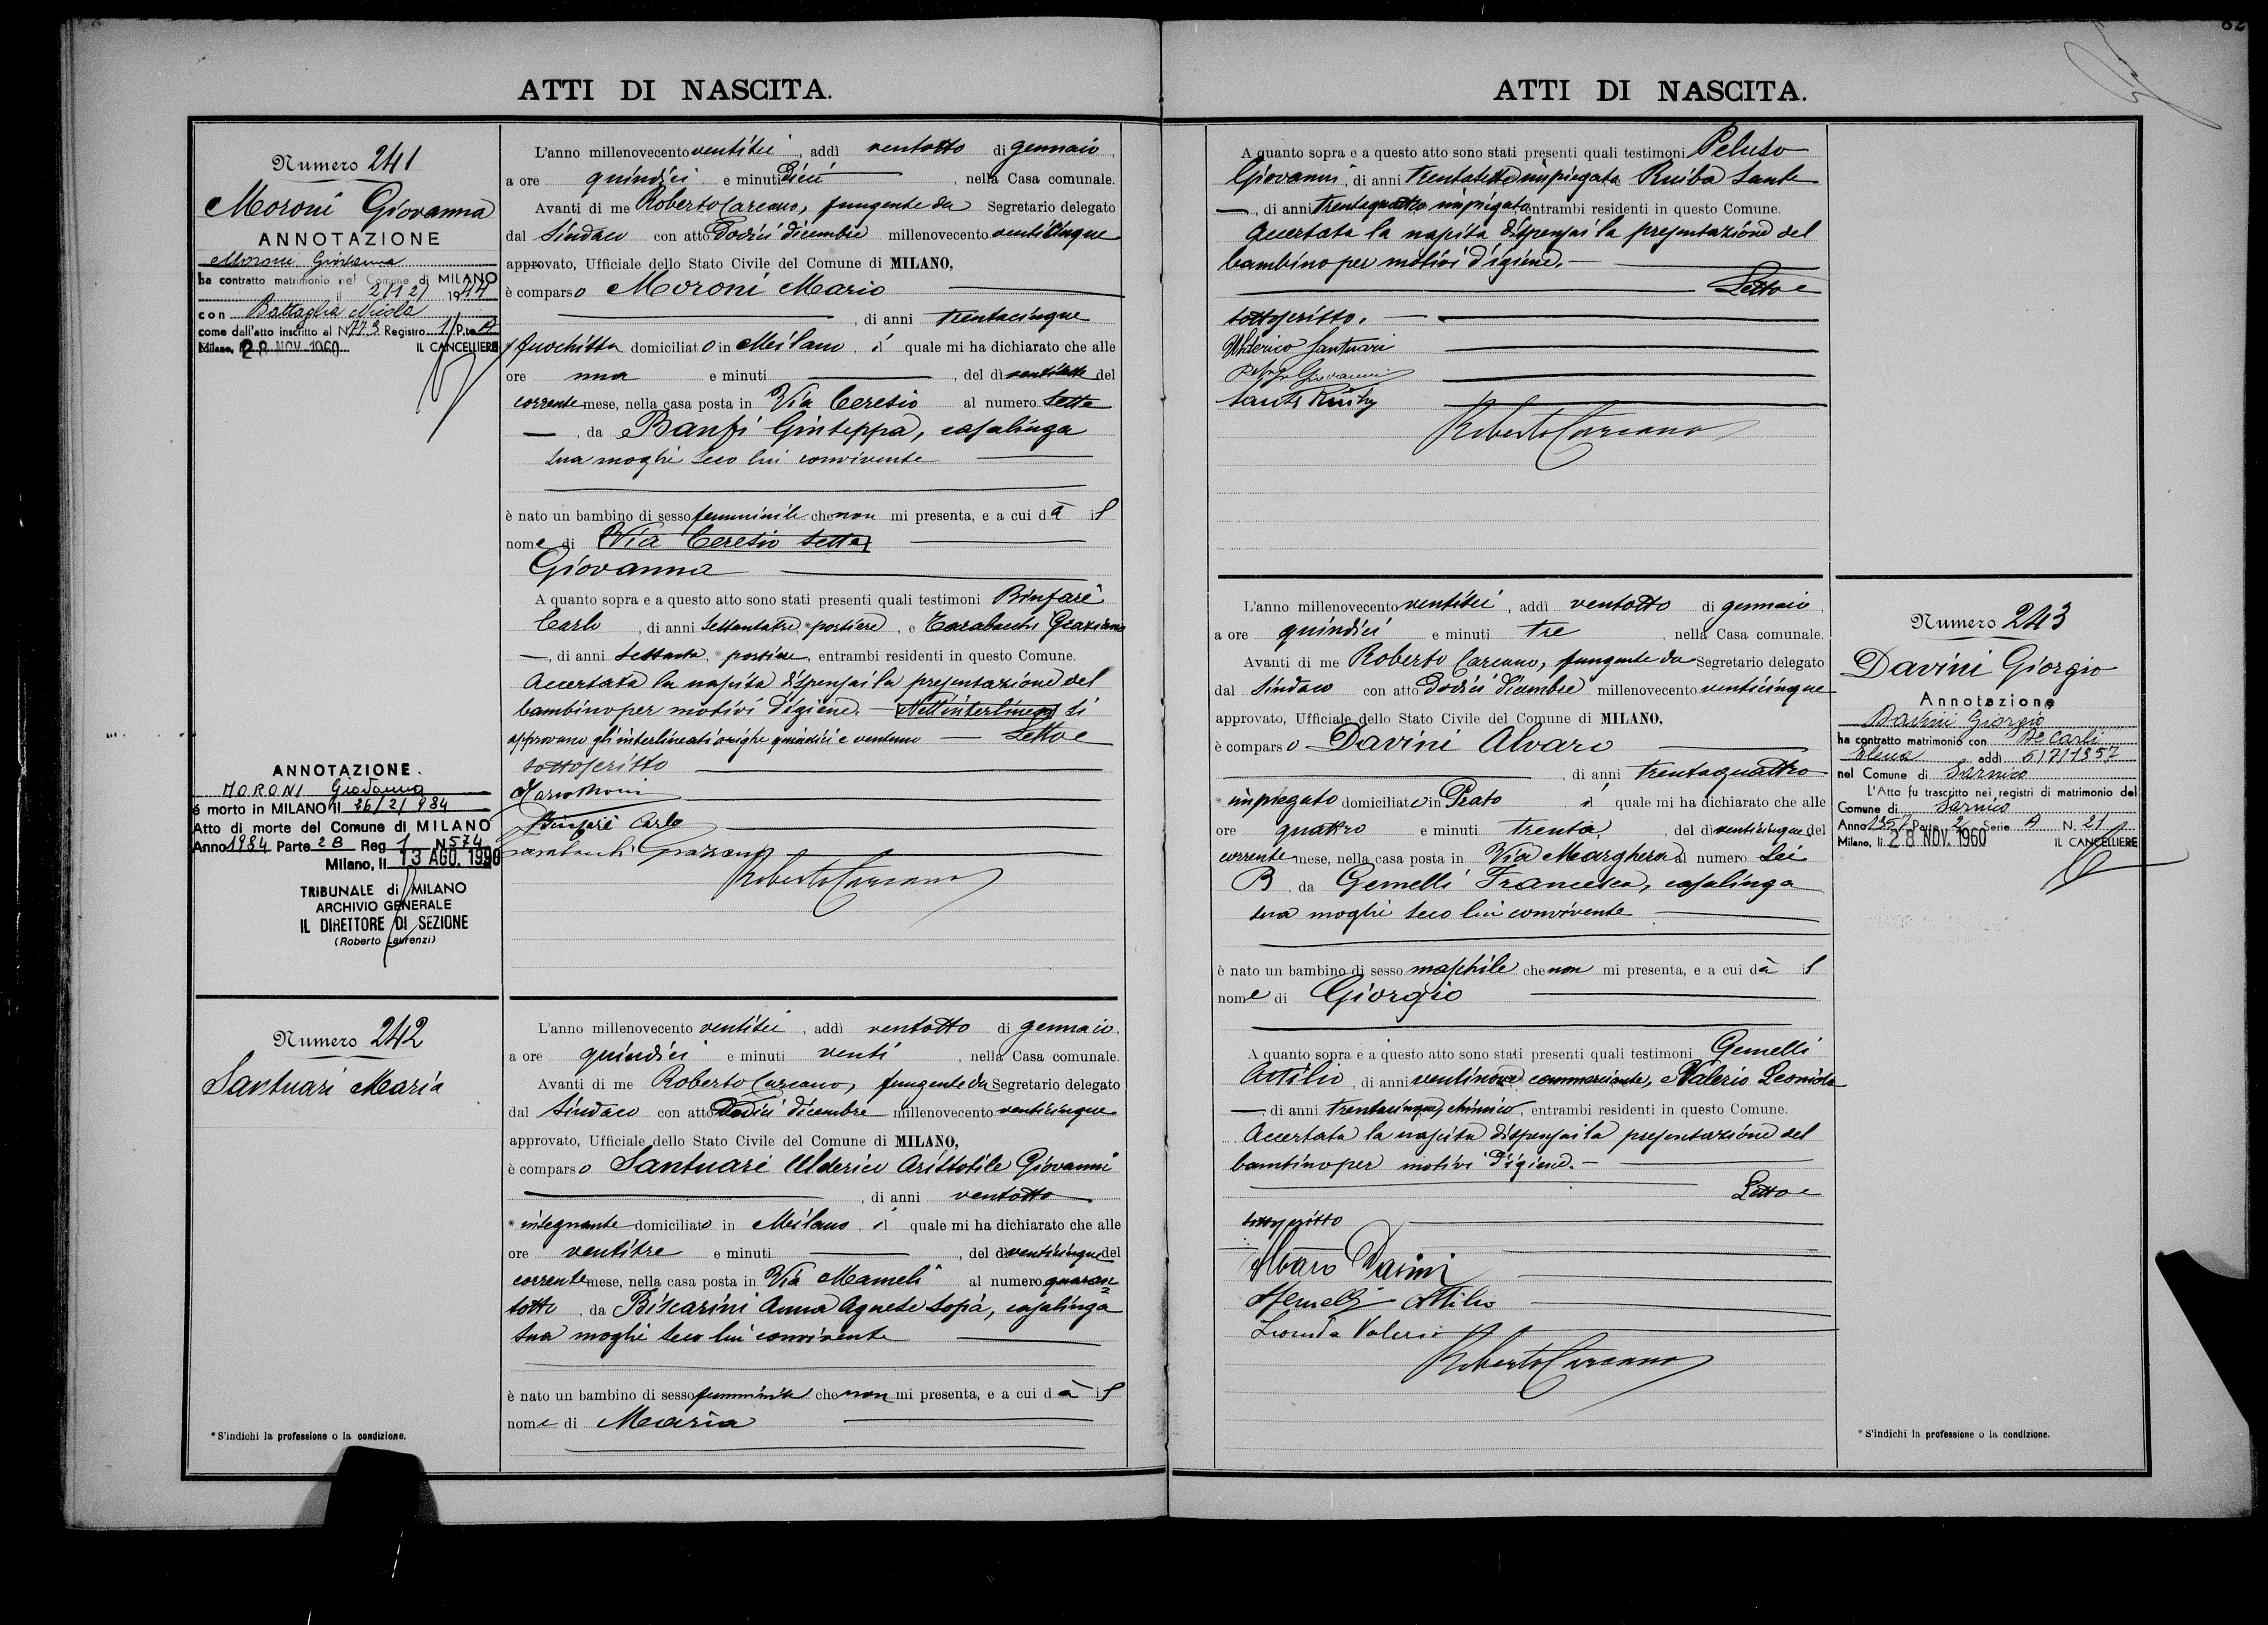 ATTI DI NASCITA.
Numero 241
Moroni Giovanna
ANNOTAZIONE
Moroni Giovanna
ha contratto matrimonio nel Comune di MILANO
il 2/12/1944
con Battaglia Nicola
come dall'atto inscritto al N 773 Registro 1 P.te A
Milano, 28 NOV. 1960 IL CANCELLIERE
ANNOTAZIONE.
MORONI Giovanna
é morto in MILANO il 26/2/984
Atto di morte del Comune di MILANO
Anno 1984 Parte 2B Reg 1 N 574
Milano, li 13 AGO. 1990
TRIBUNALE di MILANO
ARCHIVIO GENERALE
IL DIRETTORE DI SEZIONE
(Roberto Laurenzi)
L'anno millenovecento ventisei, addì ventotto di gennaio,
a ore quindici e minuti dieci, nella Casa comunale.
Avanti di me Roberto Carcano, fungente da Segretario delegato
dal Sindaco con atto dodici dicembre millenovecento venticinque
approvato, Ufficiale dello Stato Civile del Comune di MILANO,
è comparso Moroni Mario
, di anni trentacinque
* fuochista domiciliato in Milano, il quale mi ha dichiarato che alle
ore una e minuti , del dì del
corrente mese, nella casa posta in Via Ceresio al numero sette
, da Banfi Giuseppa, casalinga
sua moglie seco lui convivente
è nato un bambino di sesso femminile che non mi presenta, e a cui dà il
nome di Via Ceresio sette
Giovanna
A quanto sopra e a questo atto sono stati presenti quali testimoni Binfarè
Carlo, di anni settantatre, * portiere, e Graziano
, di anni sessanta, * portiere, entrambi residenti in questo Comune.
Accertata la nascita dispensai la presentazione del
bambino per motivi d'igiene. Nell'interlinea si
approvano gl'interlineati a righe quindici e ventuno Letto e
sottoscritto
Mario Moroni
Binfarè Carlo
Graziano
Roberto Carcano
Numero 242
Santuari Maria
L'anno millenovecento ventisei, addì ventotto di gennaio,
a ore quindici e minuti venti, nella Casa comunale.
Avanti di me Roberto Carcano, fungente da Segretario delegato
dal Sindaco con atto dodici dicembre millenovecento venticinque
approvato, Ufficiale dello Stato Civile del Comune di MILANO,
è comparso Santuari Ulderico Aristotile Giovanni
, di anni ventotto
* insegnante domiciliato in Milano, il quale mi ha dichiarato che alle
ore ventitre e minuti , del dì venticinque del
corrente mese, nella casa posta in Via Mameli al numero quaran
totto, da Biscarini Anna Agnese Sofia, casalinga
sua moglie seco lui convivente
è nato un bambino di sesso femminile che non mi presenta, e a cui dà il
nome di Maria
* S'indichi la professione o la condizione.
ATTI DI NASCITA.
A quanto sopra e a questo atto sono stati presenti quali testimoni Peluso
Giovanni, di anni trentasette impiegato, e Ruiba Sante
, di anni trentaquattro impiegato, entrambi residenti in questo Comune.
Accertata la nascita dispensai la presentazione del
bambino per motivi d'igiene.
Letto e
sottoscritto.
Ulderico Santuari
Peluso Giovanni
Sante Ruiba
Roberto Carcano
L'anno millenovecento ventisei, addì ventotto di gennaio,
a ore quindici e minuti tre, nella Casa comunale.
Avanti di me Roberto Carcano, fungente da Segretario delegato
dal Sindaco con atto dodici dicembre millenovecento venticinque
approvato, Ufficiale dello Stato Civile del Comune di MILANO,
è comparso Davini Alvaro
, di anni trentaquattro
* impiegato domiciliato in Prato il quale mi ha dichiarato che alle
ore quattro e minuti trenta, del dì venticinque del
corrente mese, nella casa posta in Via Marghera al numero sei
B, da Gemelli Francesca, casalinga
sua moglie seco lui convivente
è nato un bambino di sesso maschile che non mi presenta, e a cui dà il
nome di Giorgio
A quanto sopra e a questo atto sono stati presenti quali testimoni Gemelli
Attilio, di anni ventinove commerciante, e Valerio Leonida
, di anni trentacinque, chimico, entrambi residenti in questo Comune.
Accertata la nascita dispensai la presentazione del
bambino per motivi d'igiene.
Letto e
sottoscritto
Alvaro Davini
Gemelli Attilio
Leonida Valerio
Roberto Carcano
Numero 243
Davini Giorgio
Annotazione
Davini Giorgio
ha contratto matrimonio con De Carli
Elena addì 6/7/1957
nel Comune di Sarnico
L'Atto fu trascritto nei registri di matrimonio del
Comune di Sarnico
Anno 1957 Parte 2 Serie A N. 21
Milano, li 28 NOV. 1960 IL CANCELLIERE
* S'indichi la professione o la condizione.